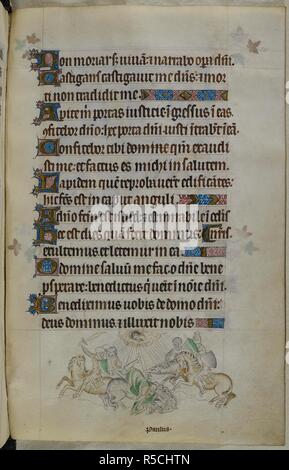 Non moriar s; vivam: & narrabo opa dni.
Castigans castigavit me dns: & mor
ti non tradidit me.
Aperite m portas iusticie ingressus i eas
confitebor dno: hec porta dni iusti intrabt i ea.
Confitebor tibi domine qm exaudi
sti me: et factus es michi in salutem.
Lapidem que reprobaverut edificates:
hic fcs est in caput anguli.
A dno fcm est istud: & e mirabile i oclis
Hec est dies qua fecit dominus:
exultemus et letemur in ea.
O domine salvu me fac o dne bene
psperare: benedictus q venit i noie dni.
Benediximus vobis de domo dni:
deus dominus & illuxit nobis
paulus.
R5CHTN